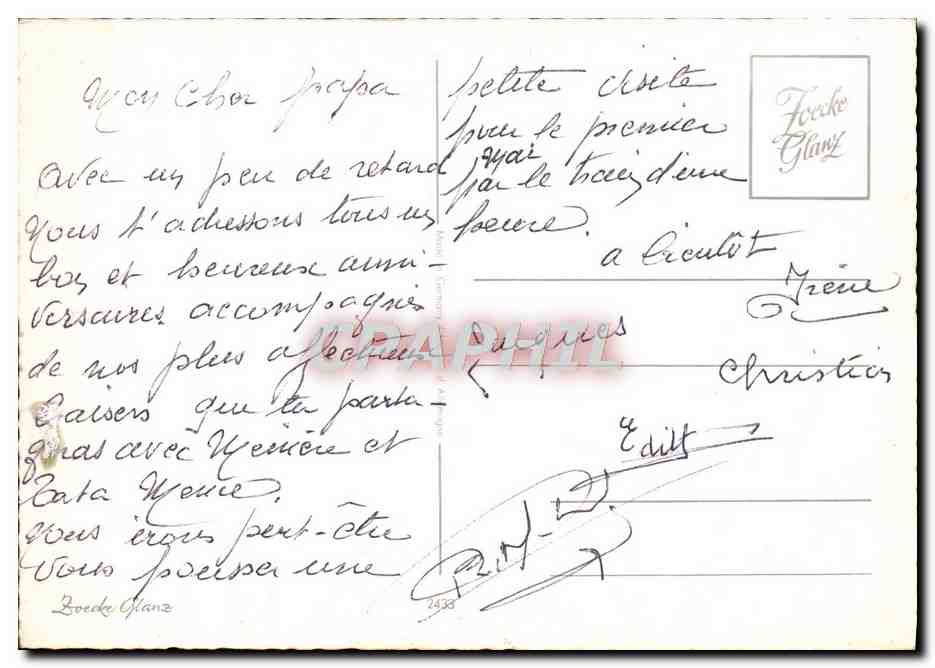 Mon Cher papa
avec un peu de retard
Nous t'adressons tous un
bon et heureux anni-
versaires accompagnés
de nos plus affectueux
baisers que tu parta-
geras avec Mémère et
Tata
Nous irons peut-être
vous pousser une
petite visite
pour le premier
Mai
par le train d'une
heure.
a bientôt
Irène
Jacques
Christian
Edith
Zoecke
Glanz
CPAPHIL
Made in Germany
Zoecke Glanz
2433